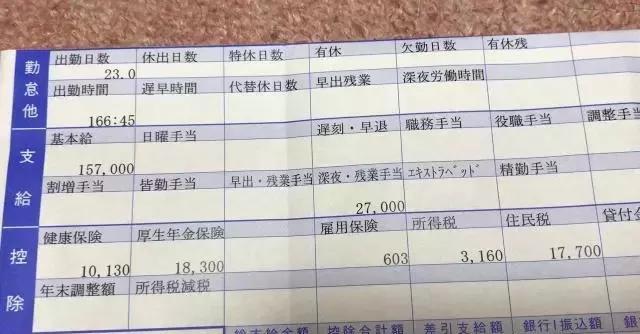 勤怠他
出勤日数 休出日数 特休日数 有休 欠勤日数 有休残
23.0
出勤時間 遅早時間 代替休日数 早出残業 深夜労働時間
166:45
支給
基本給 日曜手当 遅刻・早退 職務手当 役職手当 調整手
157,000
割増手当 皆勤手当 早出・残業手当 深夜・残業手当 エキストラベッド 精勤手当
27,000
控除
健康保険 厚生年金保険 雇用保険 所得税 住民税 貸付金
10,130 18,300 603 3,160 17,700
年末調整額 所得税減税
総支給金額 控除合計額 差引支給額 銀行1振込額 銀